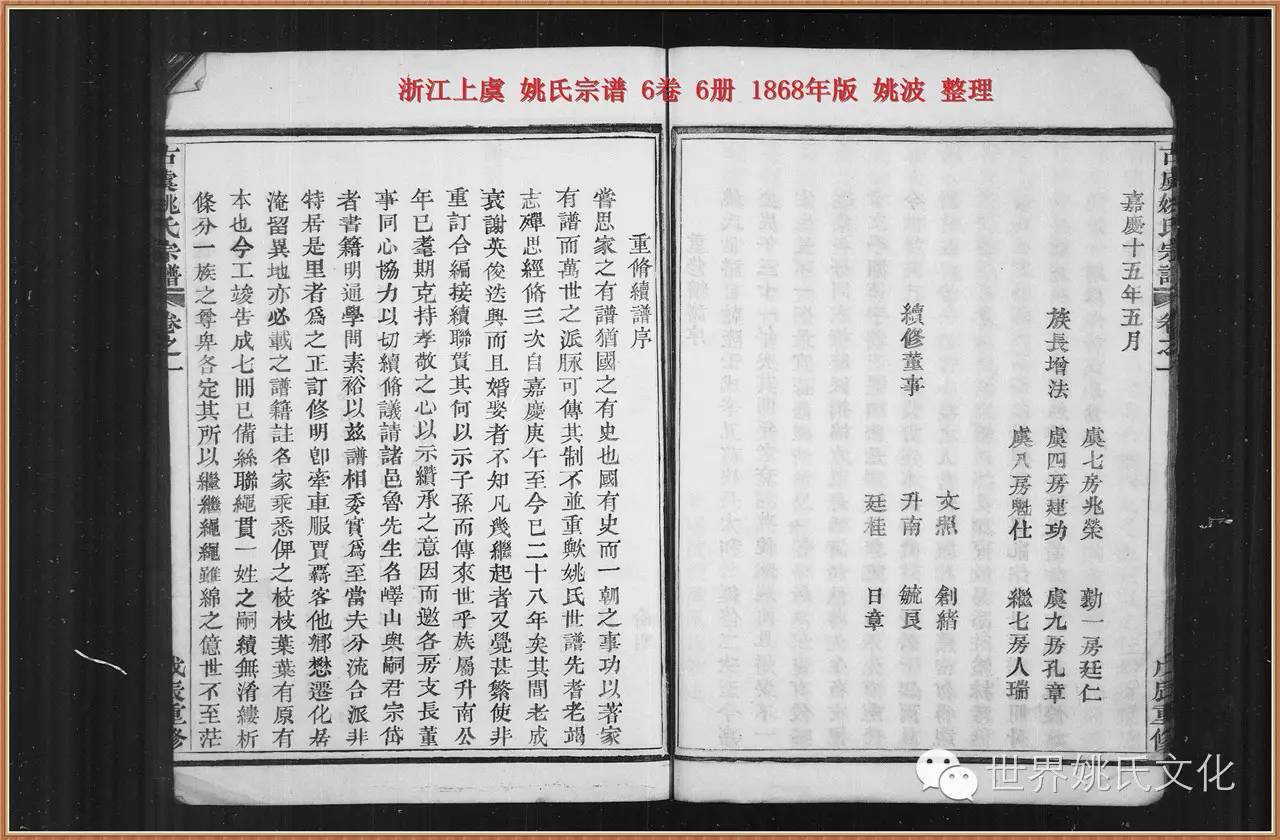 浙江上虞 姚氏宗谱 6卷 6册 1868年版 姚波 整理
古虞姚氏宗譜 卷之一
嘉慶十五年五月
族長增法 虞七房兆榮 勤一房廷仁
虞四房建功 虞九房孔章
虞八房魁仕 繼七房人瑞
續修董事 文熙 創緒
升南 毓良
廷桂 日章
重脩續譜序
嘗思家之有譜猶國之有史也國有史而一朝之事功以著家
有譜而萬世之派脉可傳其制不並重歟姚氏世譜先耆老竭
志殫思經脩三次自嘉慶庚午至今已二十八年矣其間老成
衰謝英俊迭興而且婚娶者不知凡幾繼起者又覺甚繁使非
重訂合編接續聯貫其何以示子孫而傳來世乎族屬升南公
年已耄期克持孝敬之心以示纘承之意因而邀各房支長董
事同心協力以切續脩議請諸邑魯先生名嶧山與嗣君宗岱
者書籍明通學問素裕以茲譜相委實爲至當夫分流合派非
特居是里者爲之正訂修明卽牽車服賈覊客他鄉懋遷化居
淹留異地亦必載之譜籍註名家乘悉俾之枝枝葉葉有原有
本也今工竣告成七冊已備絲聯繩貫一姓之嗣續無淆縷析
條分一族之尊卑各定其所以繼繼繩繩雖綿之億世不至茫
古虞姚氏宗譜 卷之一
戊辰重修
世界姚氏文化